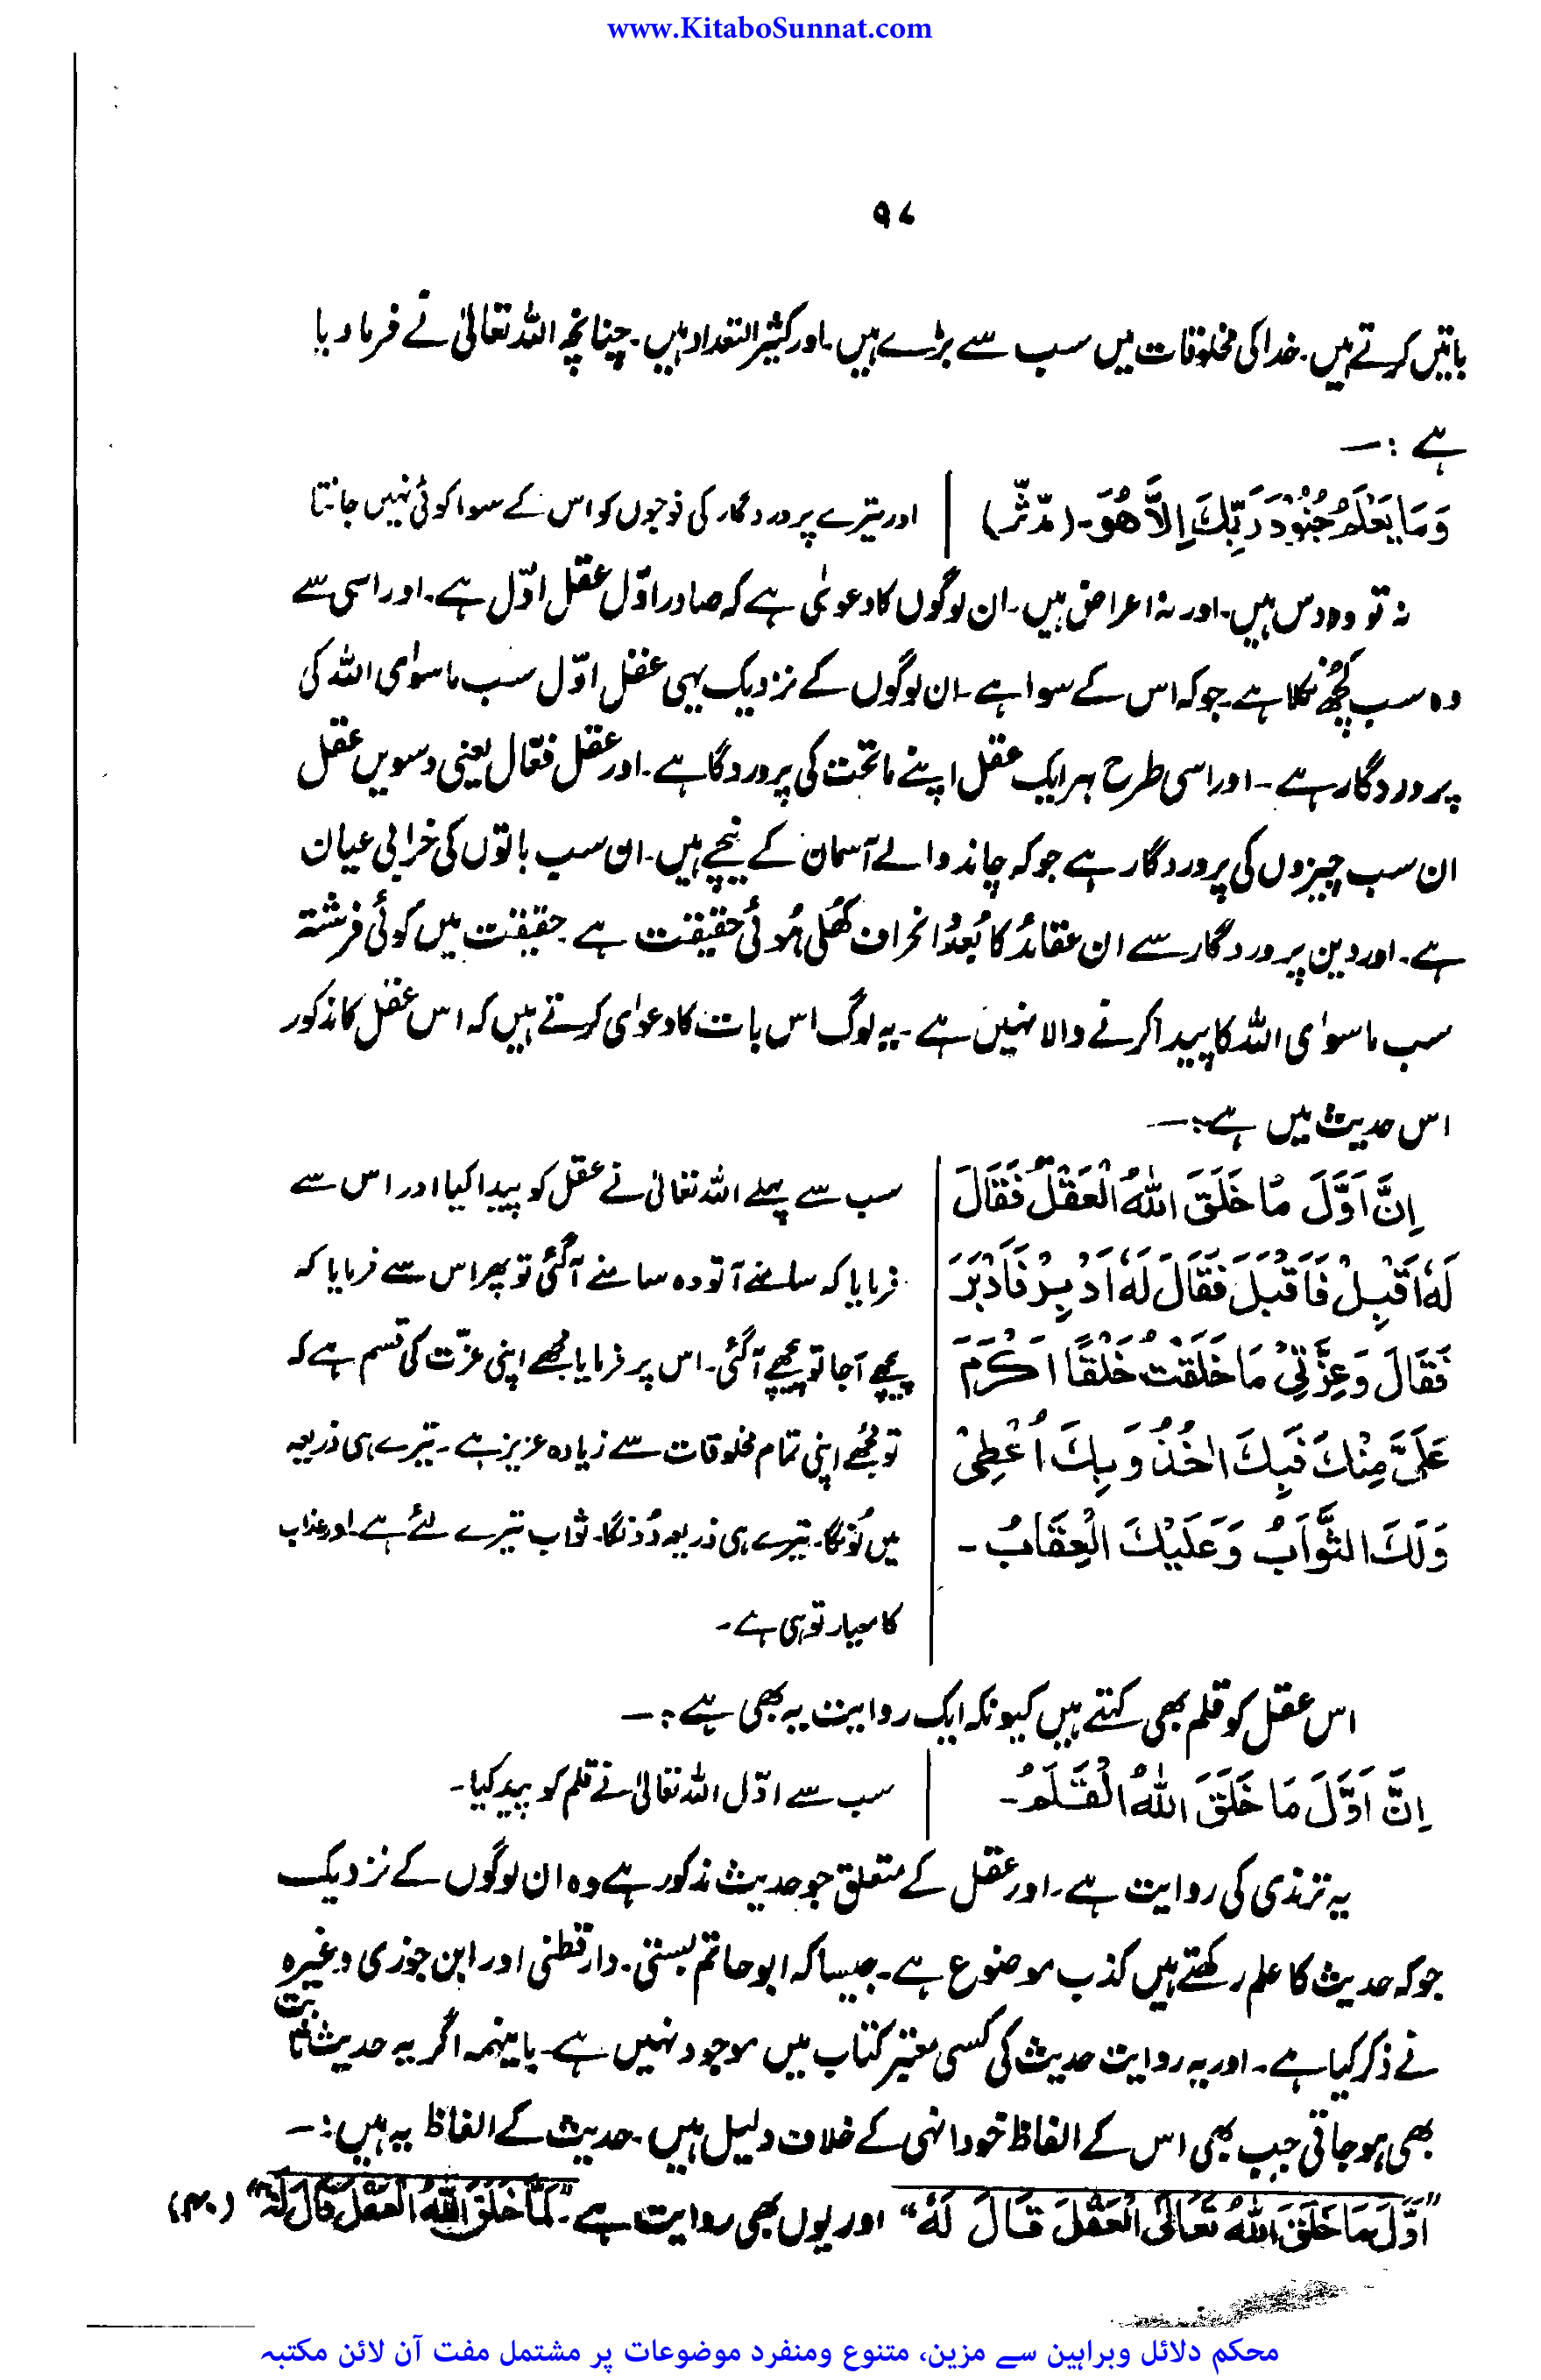 www.KitaboSunnat.com
۹۷
باتیں کرتے ہیں۔ خدا کی مخلوقات میں سب سے بڑے ہیں۔ اور کثیر التعداد ہیں۔ چنانچہ اللہ تعالیٰ نے فرما دیا
ہے :—
وَمَا یَعْلَمُ جُنُوْدَ رَبِّكَ اِلَّا هُوَ۔ (مدّثّر) | اور تیرے پروردگار کی فوجوں کو اس کے سوا کوئی نہیں جانتا
نہ تو وہ دس ہیں۔ اور نہ اعراض ہیں۔ ان لوگوں کا دعویٰ ہے کہ صادر اوّل عقل اوّل ہے۔ اور اسی سے
وہ سب کچھ نکلا ہے۔ جو کہ اس کے سوا ہے۔ ان لوگوں کے نزدیک یہی عقل اوّل سب ماسوای اللہ کی
پروردگار ہے۔ اور اسی طرح ہر ایک عقل اپنے ماتحت کی پروردگا ہے۔ اور عقل فعّال یعنی دسویں عقل
ان سب چیزوں کی پروردگار ہے جو کہ چاند والے آسمان کے نیچے ہیں۔ ان سب باتوں کی خرابی عیان
ہے۔ اور دین پروردگار سے ان عقائد کا بُعد و انحراف کھلی ہوئی حقیقت ہے۔ حقیقت میں کوئی فرشتہ
سب ماسوای اللہ کا پیدا کرنے والا نہیں ہے۔ یہ لوگ اس بات کا دعوای کرتے ہیں کہ اس عقل کا مذکور
اس حدیث میں ہے :—
اِنَّ اَوَّلَ مَا خَلَقَ اللّٰهُ الْعَقْلُ فَقَالَ | سب سے پہلے اللہ تعالیٰ نے عقل کو پیدا کیا اور اس سے
لَهٗ اَقْبِلْ فَاَقْبَلَ فَقَالَ لَهٗ اَدْبِرْ فَاَدْبَرَ | فرمایا کہ سامنے آ تو وہ سامنے آگئی تو پھر اس سے فرمایا کہ
فَقَالَ وَعِزَّتِیْ مَا خَلَقْتُ خَلْقًا اَكْرَمَ | پیچھے آجا تو پیچھے آگئی۔ اس پر فرمایا مجھے اپنی عزّت کی قسم ہے کہ
عَلَیَّ مِنْكَ فَبِكَ اٰخُذُ وَبِكَ اُعْطِیْ | تو مجھے اپنی تمام مخلوقات سے زیادہ عزیز ہے۔ تیرے ہی ذریعہ
وَلَكَ الثَّوَابُ وَعَلَیْكَ الْعِقَابُ۔ | میں لُونگا۔ تیرے ہی ذریعہ دُونگا۔ ثواب تیرے لئے ہے اور عذاب
کا معیار تو ہی ہے۔
اس عقل کو قلم بھی کہتے ہیں کیونکہ ایک روایت یہ بھی ہے :—
اِنَّ اَوَّلَ مَا خَلَقَ اللّٰهُ الْقَلَمُ۔ | سب سے ادّل اللہ تعالیٰ نے قلم کو پیدکیا۔
یہ ترمذی کی روایت ہے۔ اور عقل کے متعلق جو حدیث مذکور ہے وہ ان لوگوں کے نزدیک
جو کہ حدیث کا علم رکھتے ہیں کذب موضوع ہے۔ جیسا کہ ابو حاتم بستی۔ دارقطنی اور ابن جوزی وغیرہ
نے ذکر کیا ہے۔ اور یہ روایت حدیث کی کسی معتبر کتاب میں موجود نہیں ہے۔ باینہمہ اگر یہ حدیث ثابت
بھی ہو جاتی جب بھی اس کے الفاظ خود انہی کے خلاف دلیل ہیں۔ حدیث کے الفاظ یہ ہیں :—
”اَوَّلَ مَا خَلَقَ اللّٰهُ تَعَالَی الْعَقْلَ قَالَ لَهٗ“ اور یوں بھی روایت ہے ”لَمَّا خَلَقَ اللّٰهُ الْعَقْلَ قَالَ لَهٗ“ (۴۰)
محکم دلائل وبراہین سے مزین، متنوع ومنفرد موضوعات پر مشتمل مفت آن لائن مکتبہ